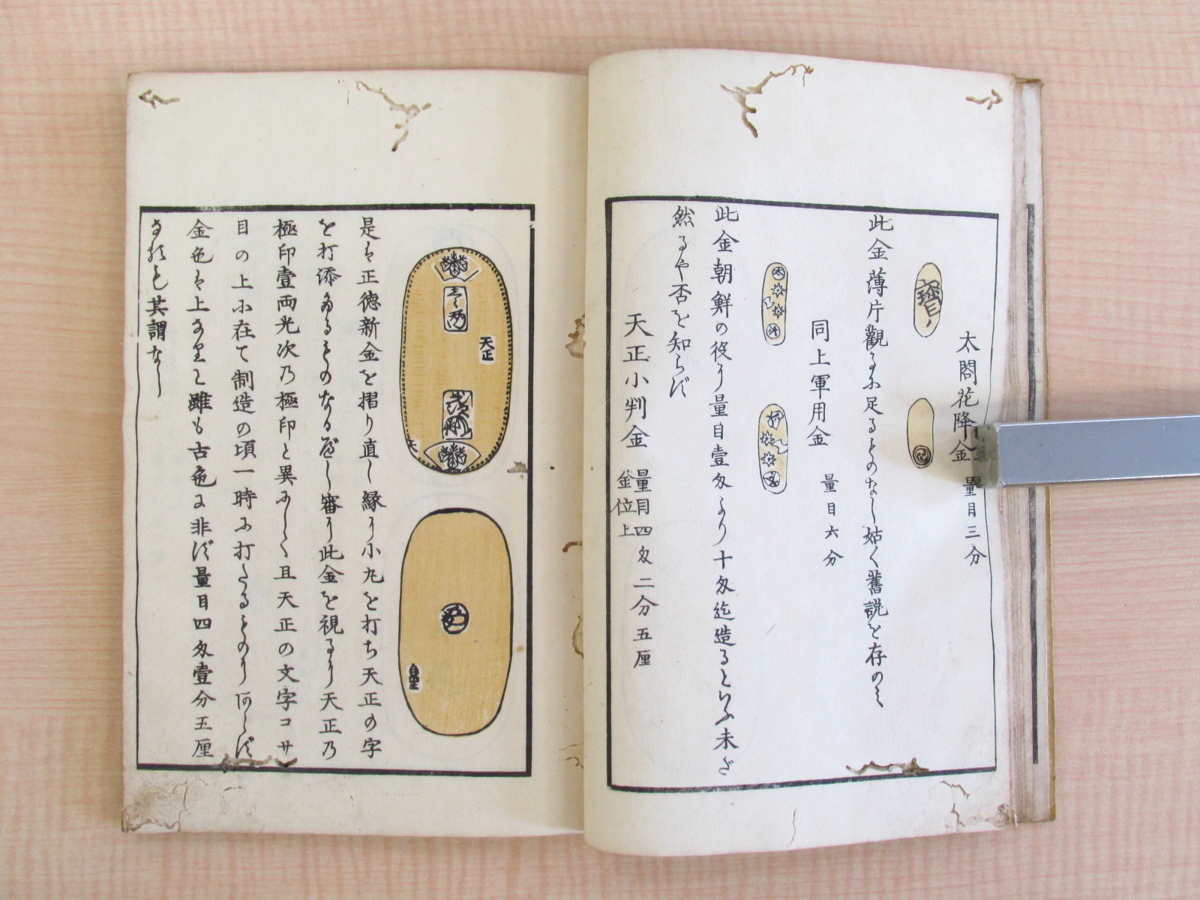 太閤花降金 量目三分
此金薄片觀るに足るものなし姑く舊説を存のミ
同上軍用金 量目六分
此金朝鮮の役り量目壹匁より十匁迄造るといふ未だ
然るや否を知らず
天正小判金 量目四匁二分五厘
金位上
天正
是は正徳新金を摺り直し縁り小丸を打ち天正の字
を打添たるものなるべし審り此金を視るり天正乃
極印壹両光次乃極印と異なり且天正の文字コサ
目の上ニ在て制造の頃一時ニ打たるものり
金色は上なりと雖も古色に非ず量目四匁壹分五厘
なれども其謂なし